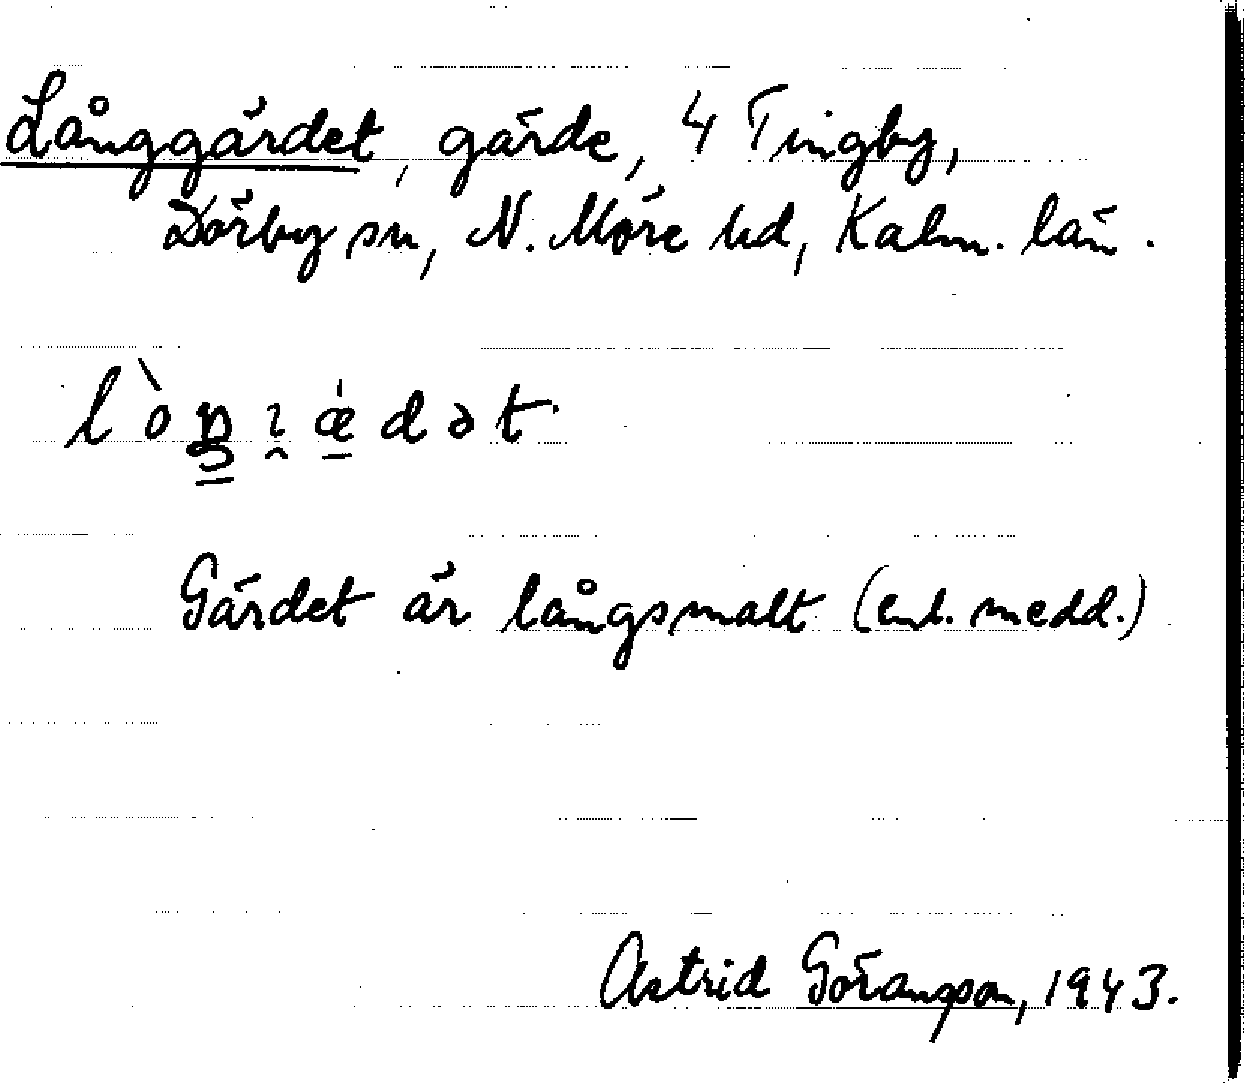 Långgärdet, gärde, 4 Tingby,
Dörby sn, N. Möre hd, Kalm. län.
Gärdet är långsmalt (enl. medd.)
Astrid Göransson, 1943.